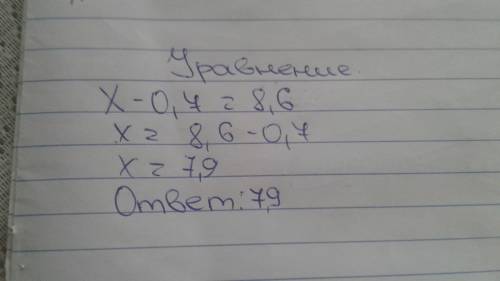 Уравнение.
X - 0,7 = 8,6
x = 8,6 - 0,7
x = 7,9
Ответ: 7,9